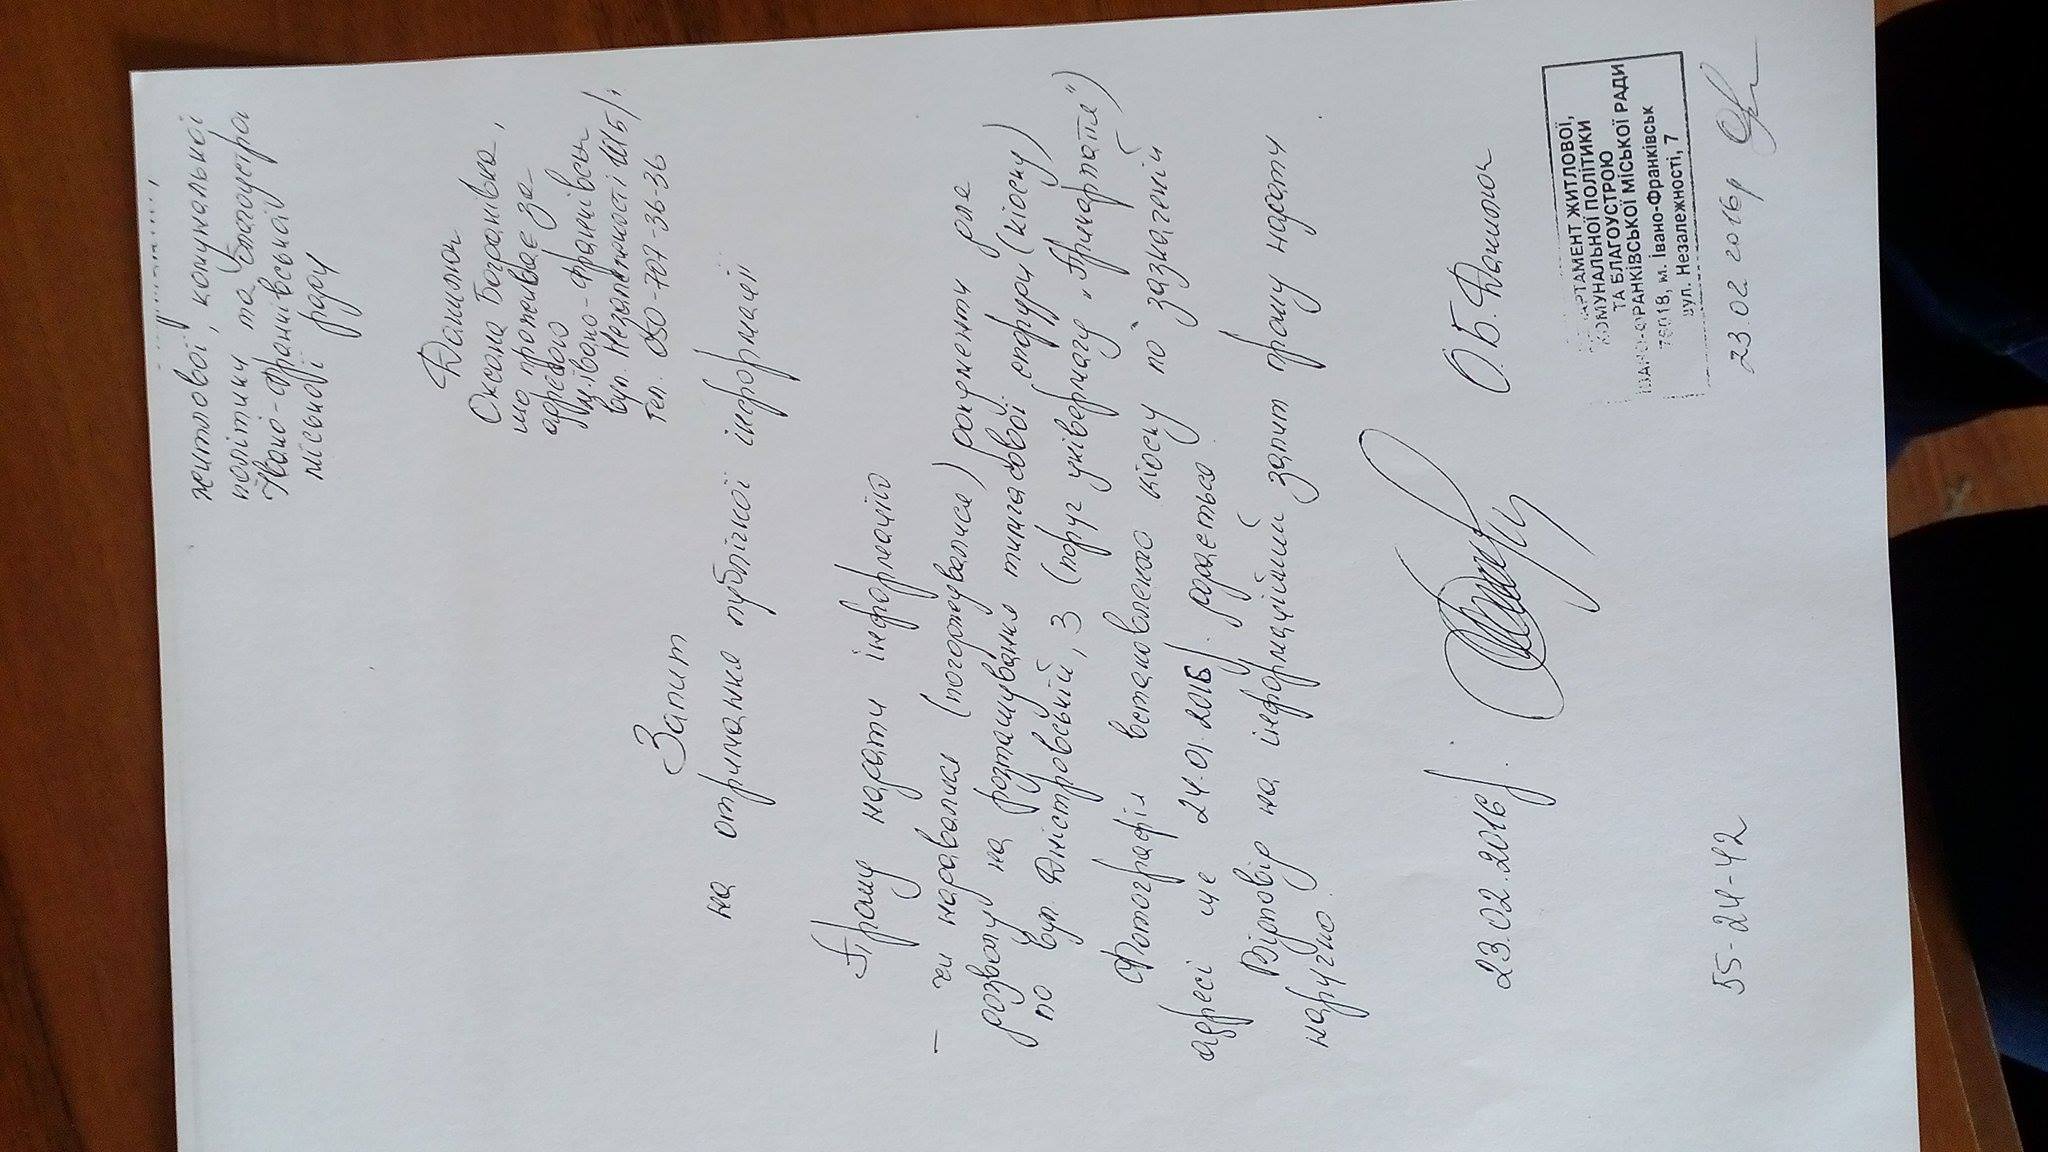 житлової, комунальної
політики та благоустрою
Івано-Франківської
міської ради
Данилюк
Оксана Богданівна,
що проживає за
адресою
м. Івано-Франківськ
вул. Незалежності
тел. 050-707-36-36
Запит
на отримання публічної інформації
Прошу надати інформацію
- чи надавалися (погоджувалися) документи для
дозволу на розташування тимчасової споруди (кіоску)
по вул. Дністровській, 3 (поруч універмагу „Прикарпаття")
Фотографія встановленого кіоску по зазначеній
адресі ще 24.01.2016р. додається.
Відповідь на інформаційний запит прошу надати
наручно.
23.02.2016р. О.Б. Данилюк
ДЕПАРТАМЕНТ ЖИТЛОВОЇ,
КОМУНАЛЬНОЇ ПОЛІТИКИ
ТА БЛАГОУСТРОЮ
ІВАНО-ФРАНКІВСЬКОЇ МІСЬКОЇ РАДИ
76018, м. Івано-Франківськ
вул. Незалежності, 7
55-24-42 23.02 2016р